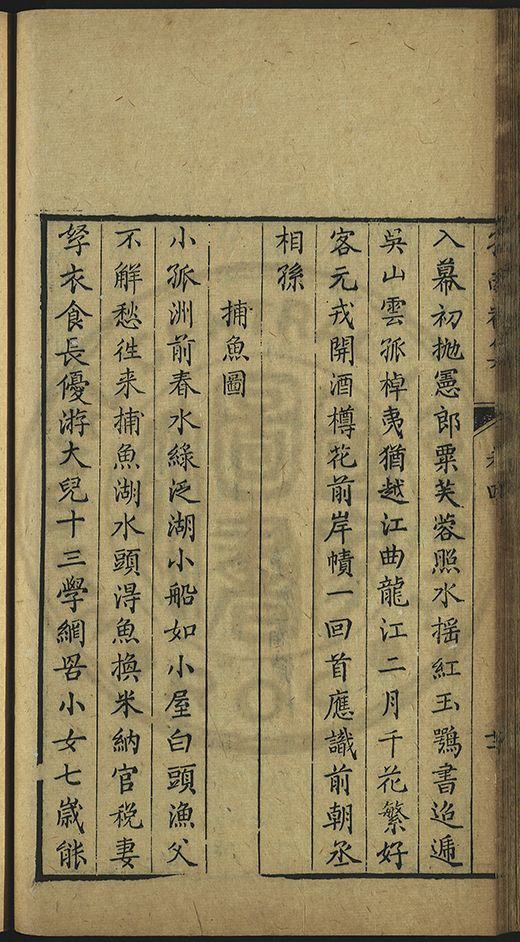 入幕初抛憲郎粟芙蓉照水揺紅玉鶚書迢遞
吳山雲孤棹夷猶越江曲龍江二月千花繁好
客元戎開酒樽花前岸幘一回首應識前朝丞
相孫
捕魚圖
小孤洲前春水綠泛湖小船如小屋白頭漁父
不解愁徃来捕魚湖水頭淂魚換米納官税妻
孥衣食長優游大兒十三學網罟小女七歲能